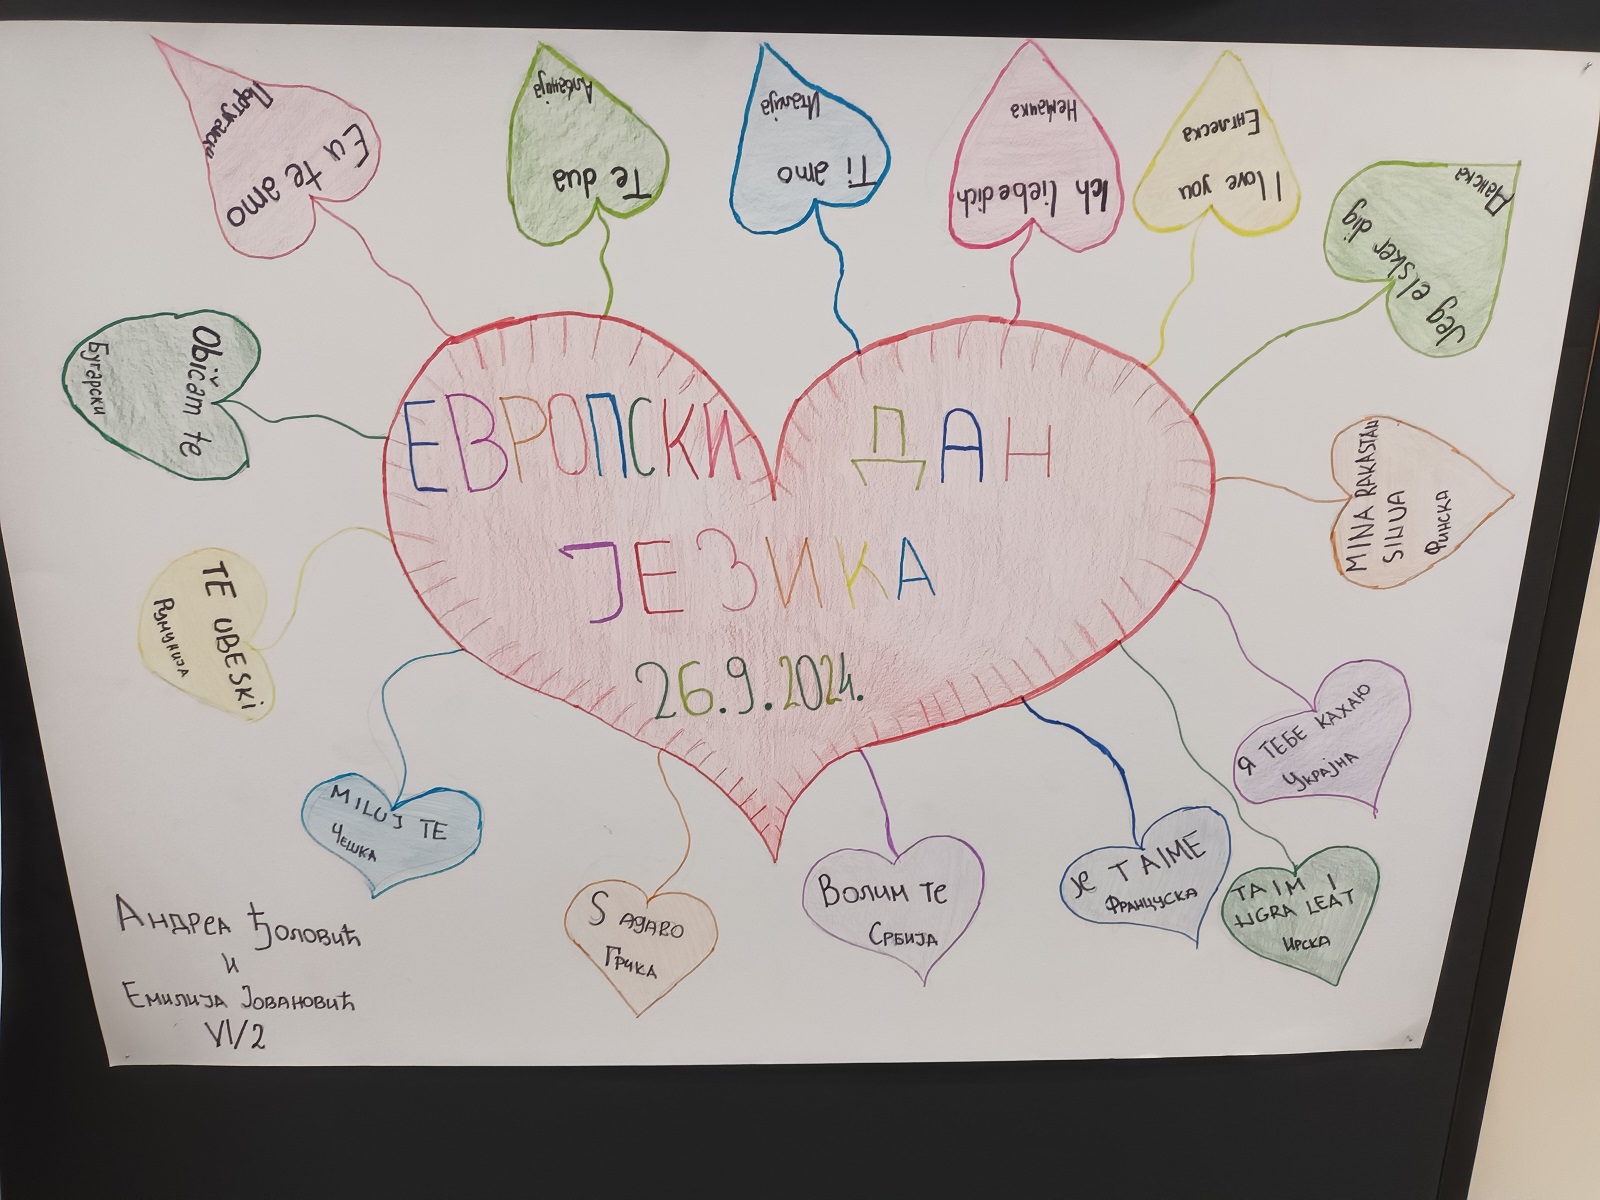 Португалски
Eu te amo
Албанија
Te dua
Италија
Ti amo
Немачка
Ich liebe dich
Енглеска
I love you
Данска
Jeg elsker dig
Obićam te
Бугарски
ЕВРОПСКИ ДАН
ЈЕЗИКА
26.9.2024.
MINA RAKASTAN
SINUA
Финска
TE UBESKi
Румунија
Я ТЕБЕ КАХАЮ
Украјна
MILUJ TE
Чешка
S AGAPO
Грчка
Волим те
Србија
Je T AIME
Француска
TA IM I
NGRA LEAT
Ирска
Андреа Ђоловић
и
Емилија Јовановић
VI/2